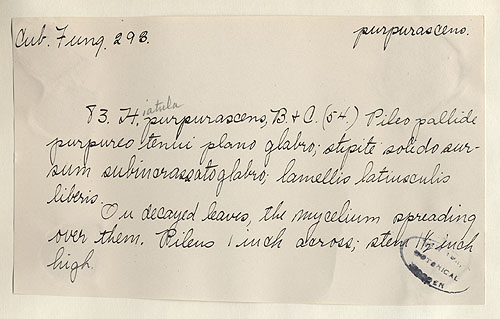 Cub. Fung. 298.
purpurascens.
83. Hiatula purpurascens, B. & C. (54.) Pileo pallide
purpureo tenui plano glabro; stipite solido sur-
sum subincrassato glabro; lamellis latiusculis
liberis.
On decayed leaves, the mycelium spreading
over them. Pileus 1 inch across; stem 1½ inch
high.
BOTANICAL